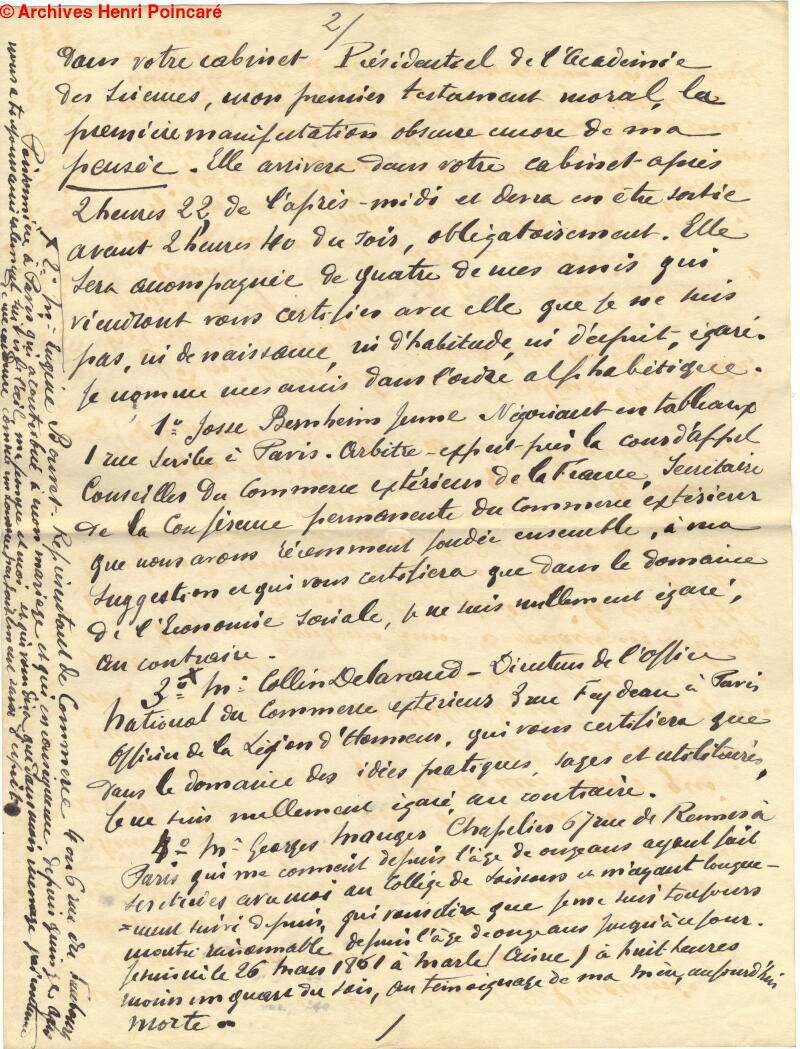 © Archives Henri Poincaré
2/
dans votre cabinet Présidentiel de l'Académie
des Sciences, mon premier testament moral, la
première manifestation obscure encore de ma
pensée. Elle arrivera dans votre cabinet après
2 heures 22 de l'après-midi et devra en être sortie
avant 2 heures 40 du soir, obligatoirement. Elle
sera accompagnée de quatre de mes amis qui
viendront vous certifier avec elle que je ne suis
pas, ni de naissance, ni d'habitude, ni d'esprit, égaré.
Je nomme mes amis dans l'ordre alphabétique.
1º Josse Bernheim Jeune Négociant en tableaux
1 rue Scribe à Paris. Arbitre-expert près la cour d'appel
Conseiller du Commerce extérieur de la France, Secrétaire
de la Conférence permanente du Commerce extérieur
que nous avons récemment fondée ensemble, à ma
suggestion et qui vous certifiera que dans le domaine
de l'Economie sociale, je ne suis nullement égaré,
au contraire.
3º x Mr Collin Delavaud - Directeur de l'office
National du Commerce extérieur 3 rue Feydeau à Paris
Officier de la Légion d'Honneur, qui vous certifiera que
dans le domaine des idées pratiques, sages et utilitaires,
je ne suis nullement égaré, au contraire.
4º Mr Georges Mauger Chapelier 67 rue de Rennes à
Paris qui me connait depuis l'âge de onze ans ayant fait
ses études avec moi au Collège de Soissons et m'ayant longue-
=ment suivi depuis, qui vous dira que je me suis toujours
montré raisonnable depuis l'âge de onze ans jusqu'à ce jour.
Je suis né le 26 Mars 1861 à Marle (Aisne) à huit heures
moins un quart du soir, au témoignage de ma mère, aujourd'hui
morte.
x 2º Mr Eugène Bouret - Représentant de Commerce 4 ou 6 rue du Faubourg
Poissonnière à Paris qui a contribué à mon mariage et qui en conséquence, depuis quinze ans
nous a toujours suivi ma femme et moi, et qui vous dira que dans mon ménage
je me suis conduit comme un homme parfaitement sain d'esprit